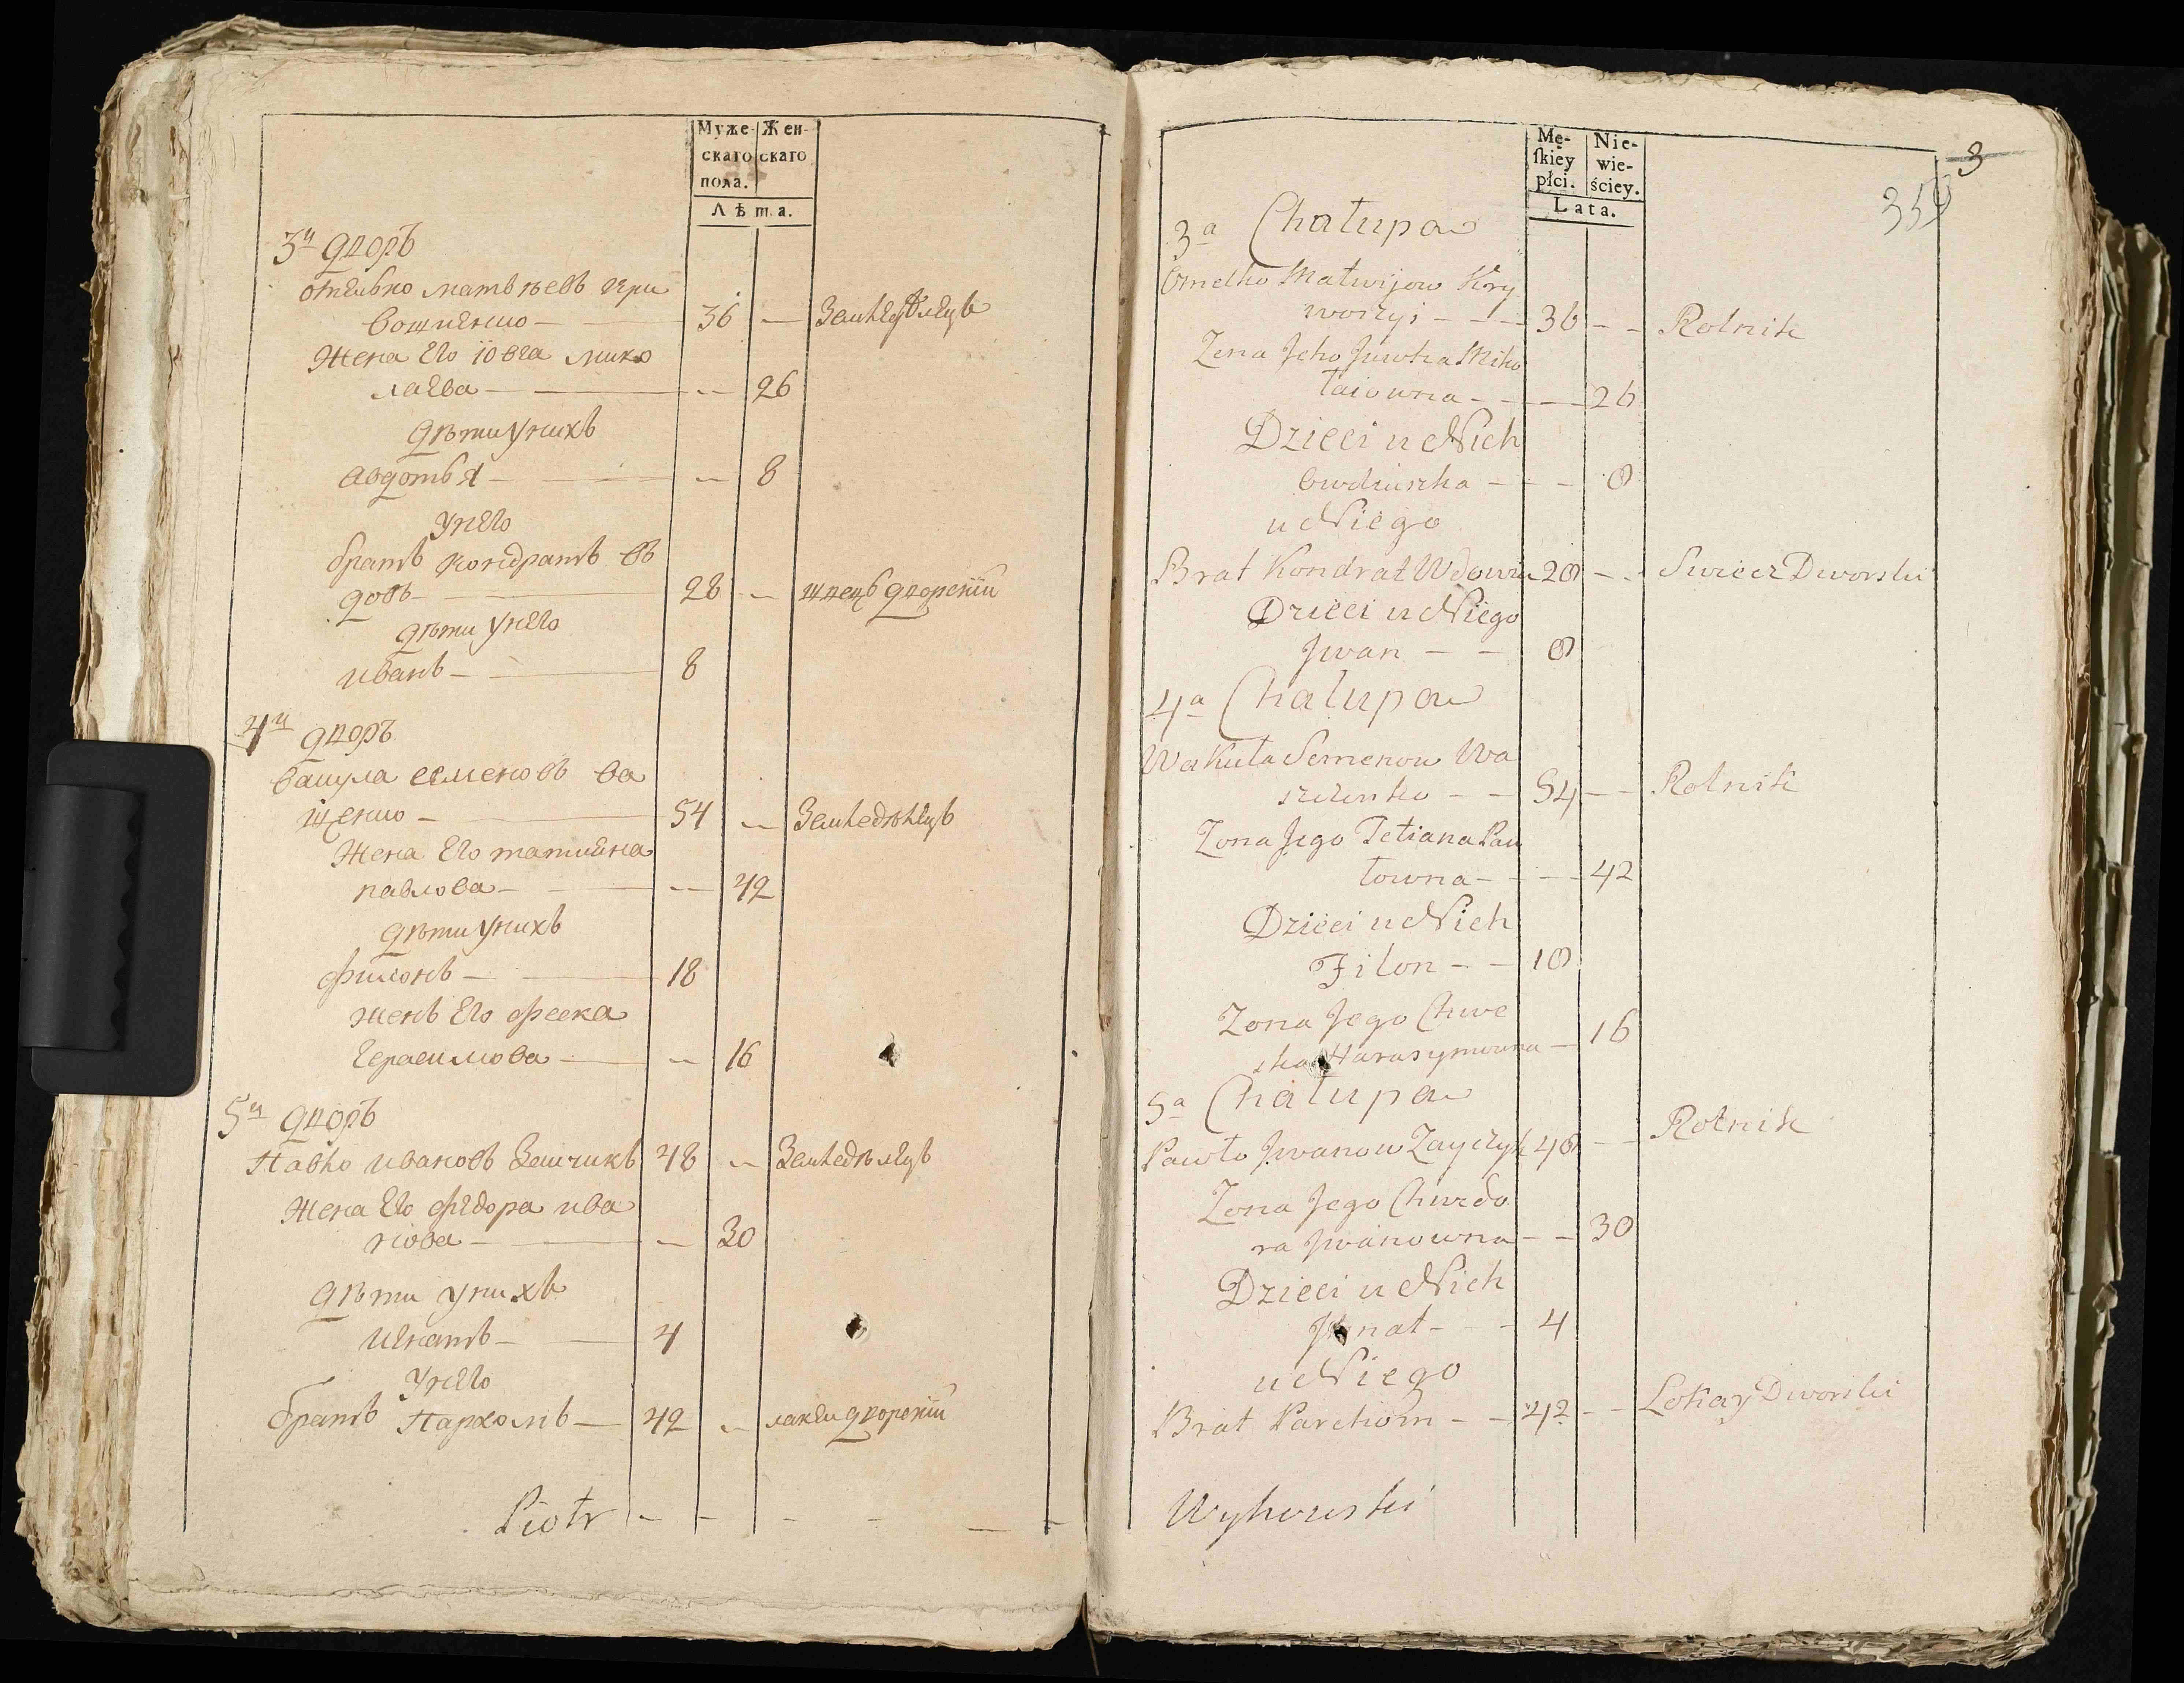 Муже-
скаго
пола.
Жен-
скаго
Лѣта.
3й дворъ
омелко матвѣевъ кри
36 — Землѣдѣлецъ
Жена Его ювга мико
лаева — — 26
дѣти у нихъ
авдотья — — 8
у него
братъ кондратъ въ
довъ — 28 — швецъ дворскiй
дѣти у него
иванъ — 8
4й дворъ
вакула семеновъ ва
щенко — 54 — Земледѣлецъ
Жена Его татияна
павлова — — 42
дѣти у нихъ
филонъ — 18
женъ Его феска
Герасимова — — 16
5й дворъ
Павло ивановъ 48 — Земледѣлецъ
Жена Его федора ива
нова — — 30
дѣти у нихъ
игнатъ — 4
у него
братъ Пархомъ — 42 — лакеи дворскiй
Piotr - - - - - -
Mę-
ſkiey
płci.
Nie-
wie-
ściey.
Lata.
3
359
3a Chałupa
Omelko Matwijow Kry
36 - - Rolnik
Zena Jeho Juwha Miko
łaiowna - - - - 26
Dzieci u Nich
Owdiuszka - - - 8
u Niego
Brat Kondrat Wdowiec 28 - - Swiec Dworski
Dzieci u Niego
Jwan - - 8
4a Chałupa
Wakuła Semenow Wa
szczenko - - 54 - - Rolnik
Zona Jego Tetiana Paw
łowna - - - - 42
Dzieci u Nich
Filon - - 18
Zona Jego Chwe
ska Harasymowna - 16
5a Chałupa
Pawło Jwanow Zayczyk 48 - - Rolnik
Zona Jego Chwedo
ra Jwanowna - - 30
Dzieci u Nich
Jhnat - - - 4
u Niego
Brat Parchom - - 42 - - Lokay Dworski
Wyhowski